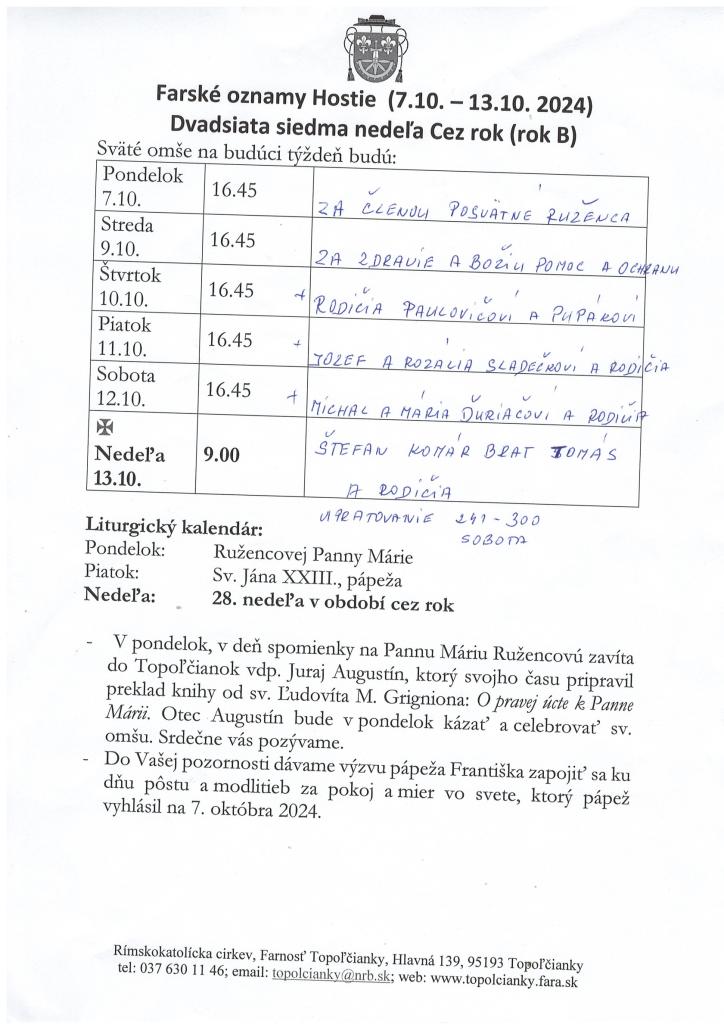 Farské oznamy Hostie (7.10. – 13.10. 2024)
Dvadsiata siedma nedeľa Cez rok (rok B)
Sväté omše na budúci týždeň budú:
Pondelok
7.10.
16.45
ZA ČLENOV POSVÄTNÉ RUŽENCA
Streda
9.10.
16.45
ZA ZDRAVIE A BOŽIU POMOC A OCHRANU
Štvrtok
10.10.
16.45
+ RODIČIA PAULOVIČOVI A PUPÁKOVI
Piatok
11.10.
16.45
+ JOZEF A ROZÁLIA SLADEČKOVI A RODIČIA
Sobota
12.10.
16.45
+ MICHAL A MÁRIA ĎURIAČOVI A RODIČIA
✠
Nedeľa
13.10.
9.00
ŠTEFAN KOMÁR BRAT TOMÁS
A RODIČIA
UPRATOVANIE 241-300
SOBOTA
Liturgický kalendár:
Pondelok: Ružencovej Panny Márie
Piatok: Sv. Jána XXIII., pápeža
Nedeľa: 28. nedeľa v období cez rok
- V pondelok, v deň spomienky na Pannu Máriu Ružencovú zavíta
do Topoľčianok vdp. Juraj Augustín, ktorý svojho času pripravil
preklad knihy od sv. Ľudovíta M. Grigniona: O pravej úcte k Panne
Márii. Otec Augustín bude v pondelok kázať a celebrovať sv.
omšu. Srdečne vás pozývame.
- Do Vašej pozornosti dávame výzvu pápeža Františka zapojiť sa ku
dňu pôstu a modlitieb za pokoj a mier vo svete, ktorý pápež
vyhlásil na 7. októbra 2024.
Rímskokatolícka cirkev, Farnosť Topoľčianky, Hlavná 139, 95193 Topoľčianky
tel: 037 630 11 46; email: topolcianky@nrb.sk; web: www.topolcianky.fara.sk